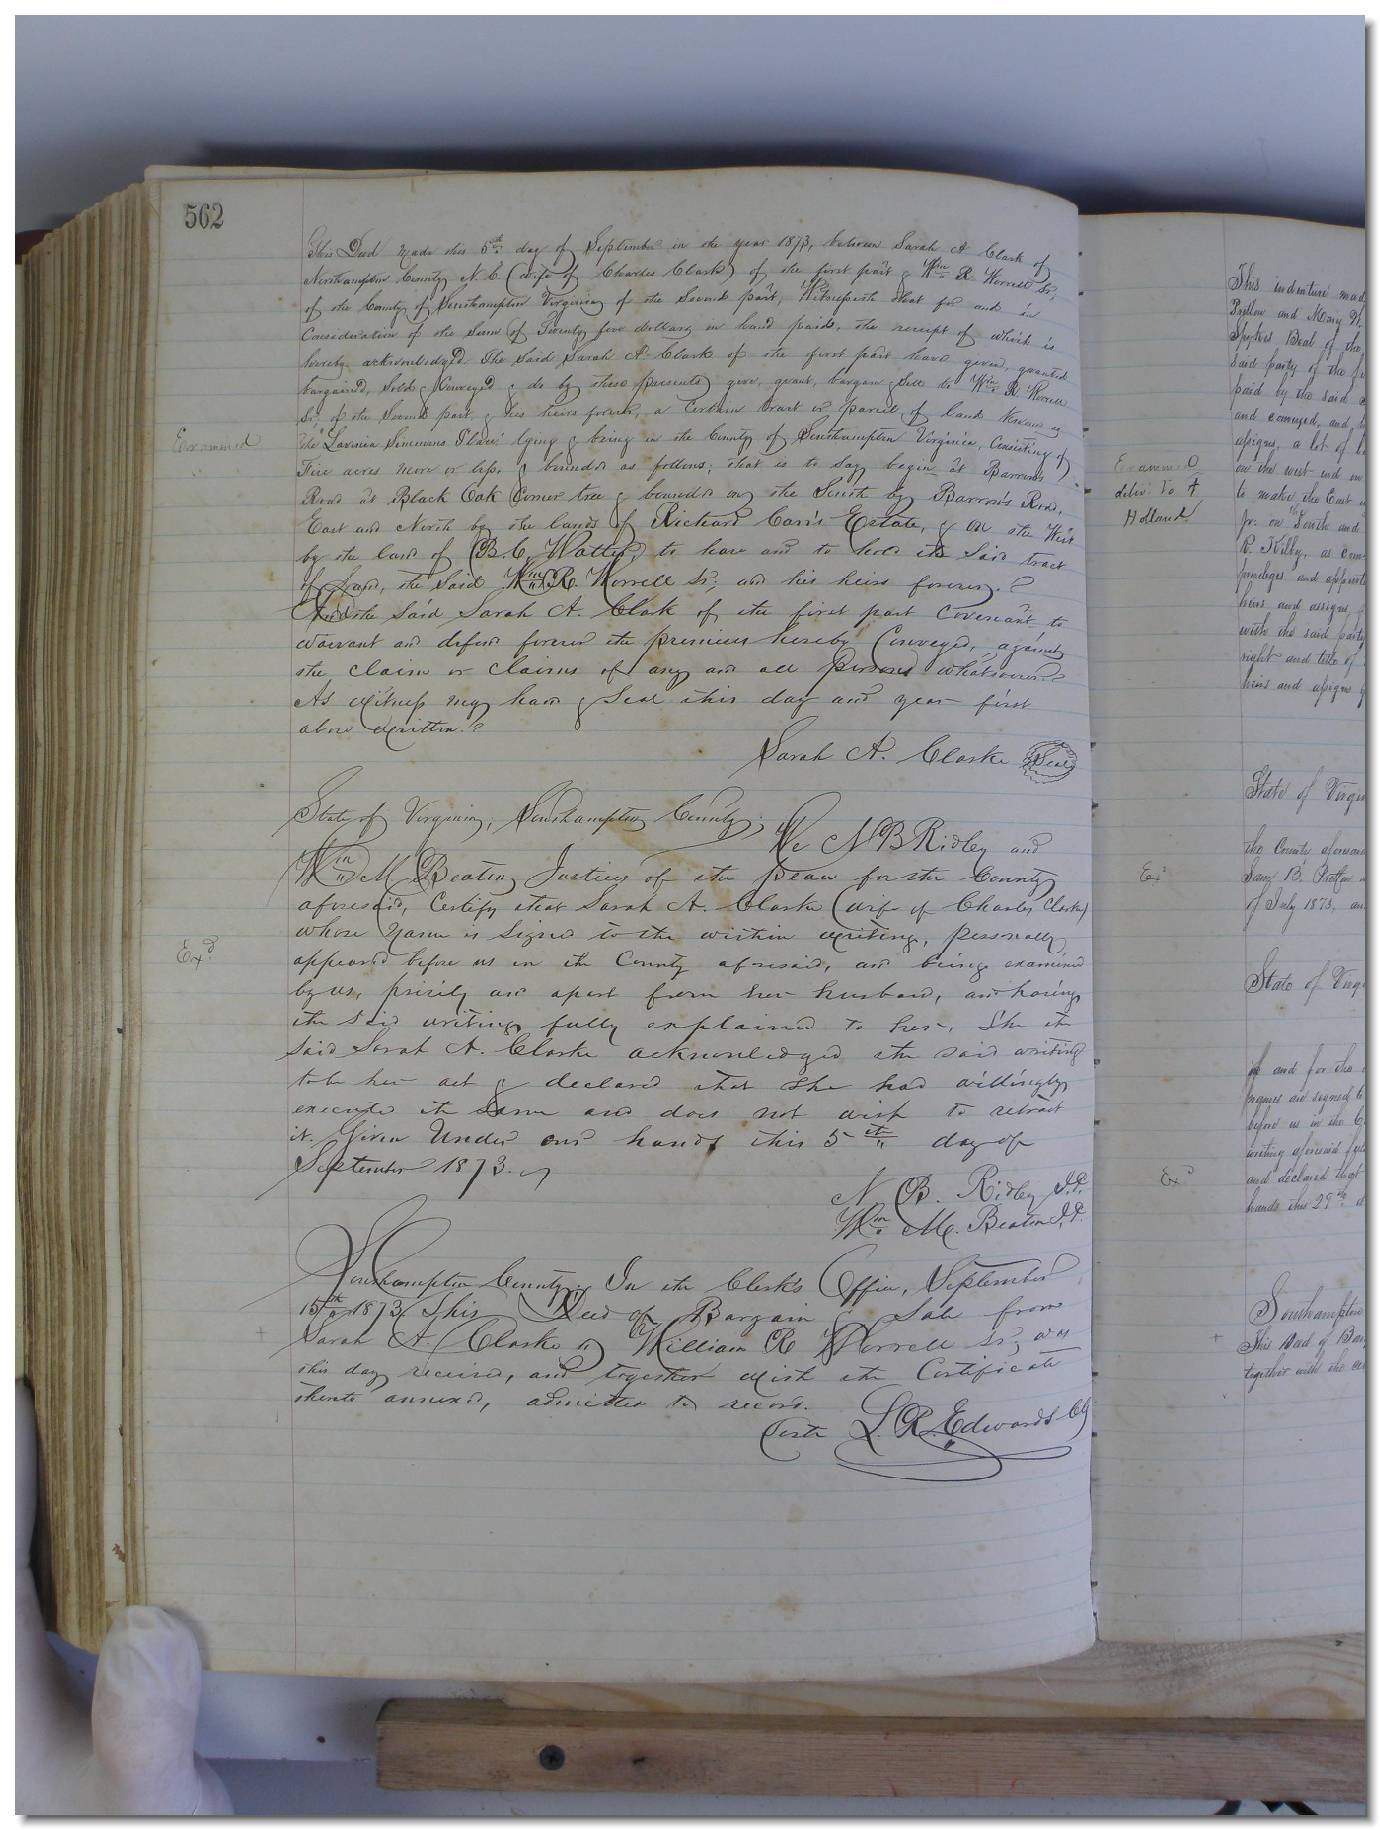 562
This Deed made this 5th day of September in the year 1873, between Sarah A Clark of
Northampton County N. C. (wife of Charles Clark) of the first part & Wm R. Worrell Sr,
of the County of Southampton Virginia of the Second part, Witnesseth that for and in
Consideration of the Sum of Twenty five dollars in hand paid, the receipt of which is
hereby acknowledged. The Said Sarah A. Clark of the first part have given, granted
bargained, Sold & Conveyed & do by these presents give, grant, bargain & Sell to Wm R. Worrell
Sr, of the Second part, & his heirs forever, a Certain tract or parcel of land known as
the Lavinia Simmons Place lying & being in the County of Southampton Virginia, Consisting of
Examined
Five acres more or less, & bounded as follows; that is to say begin at Barrow's
Road at Black Oak Corner tree & bounded on the South by Barrow's Road,
East and North by the lands of Richard Carr's Estate, & on the West
by the land of B. C. to have and to hold the Said tract
of Land, the Said Wm R. Worrell Sr, and his heirs forever.
And the Said Sarah A. Clark of the first part Covenant to
warrant and defend forever the premises hereby Conveyed, against
the claim or claims of any and all persons whatsoever
As witness my hand & Seal this day and year first
above written.
Sarah A. Clarke Seal
State of Virginia, Southampton County;
We N B Ridley and
Wm M Beaton Justices of the peace for the County
aforesaid, Certify that Sarah A. Clarke (wife of Charles Clarke)
whose name is Signed to the within writing, personally
Exd
appeared before us in the County aforesaid, and being examined
by us, privily and apart from her husband, and having
the Said writing fully explained to her, She the
Said Sarah A. Clarke acknowledged the said writing
to be her act & declared that She had willingly
executed the same and does not wish to retract
it. Given Under our hands this 5th day of
September 1873.
N. B. Ridley J.P.
Wm M. Beaton J.P.
Southampton County; In the Clerk's Office, September
15th 1873 This Deed of Bargain & Sale from
Sarah A. Clarke to William R Worrell Sr, was
this day received, and together with the Certificate
thereto annexed, admitted to record.
Teste L. R. Edwards Clk
This indenture mad
and Mary W.
Beal of the
Said party of the
paid by the said
and conveyed, and
assigns, a lot of
Examined
deliv. to
Holland
on the west end
to make the East
Jr. on South and
R. Kilby, as
privileges and
heirs and assigns,
with the said party
right and title of
heirs and assigns
State of Virgin
the County aforesaid
Exd
B.
of July 1873, an
State of Virg
of and for the
names are signed to
before us in the C
writing aforesaid
Exd
and declared that
hands this 29th d
Southampton
This Deed of Bar
together with the